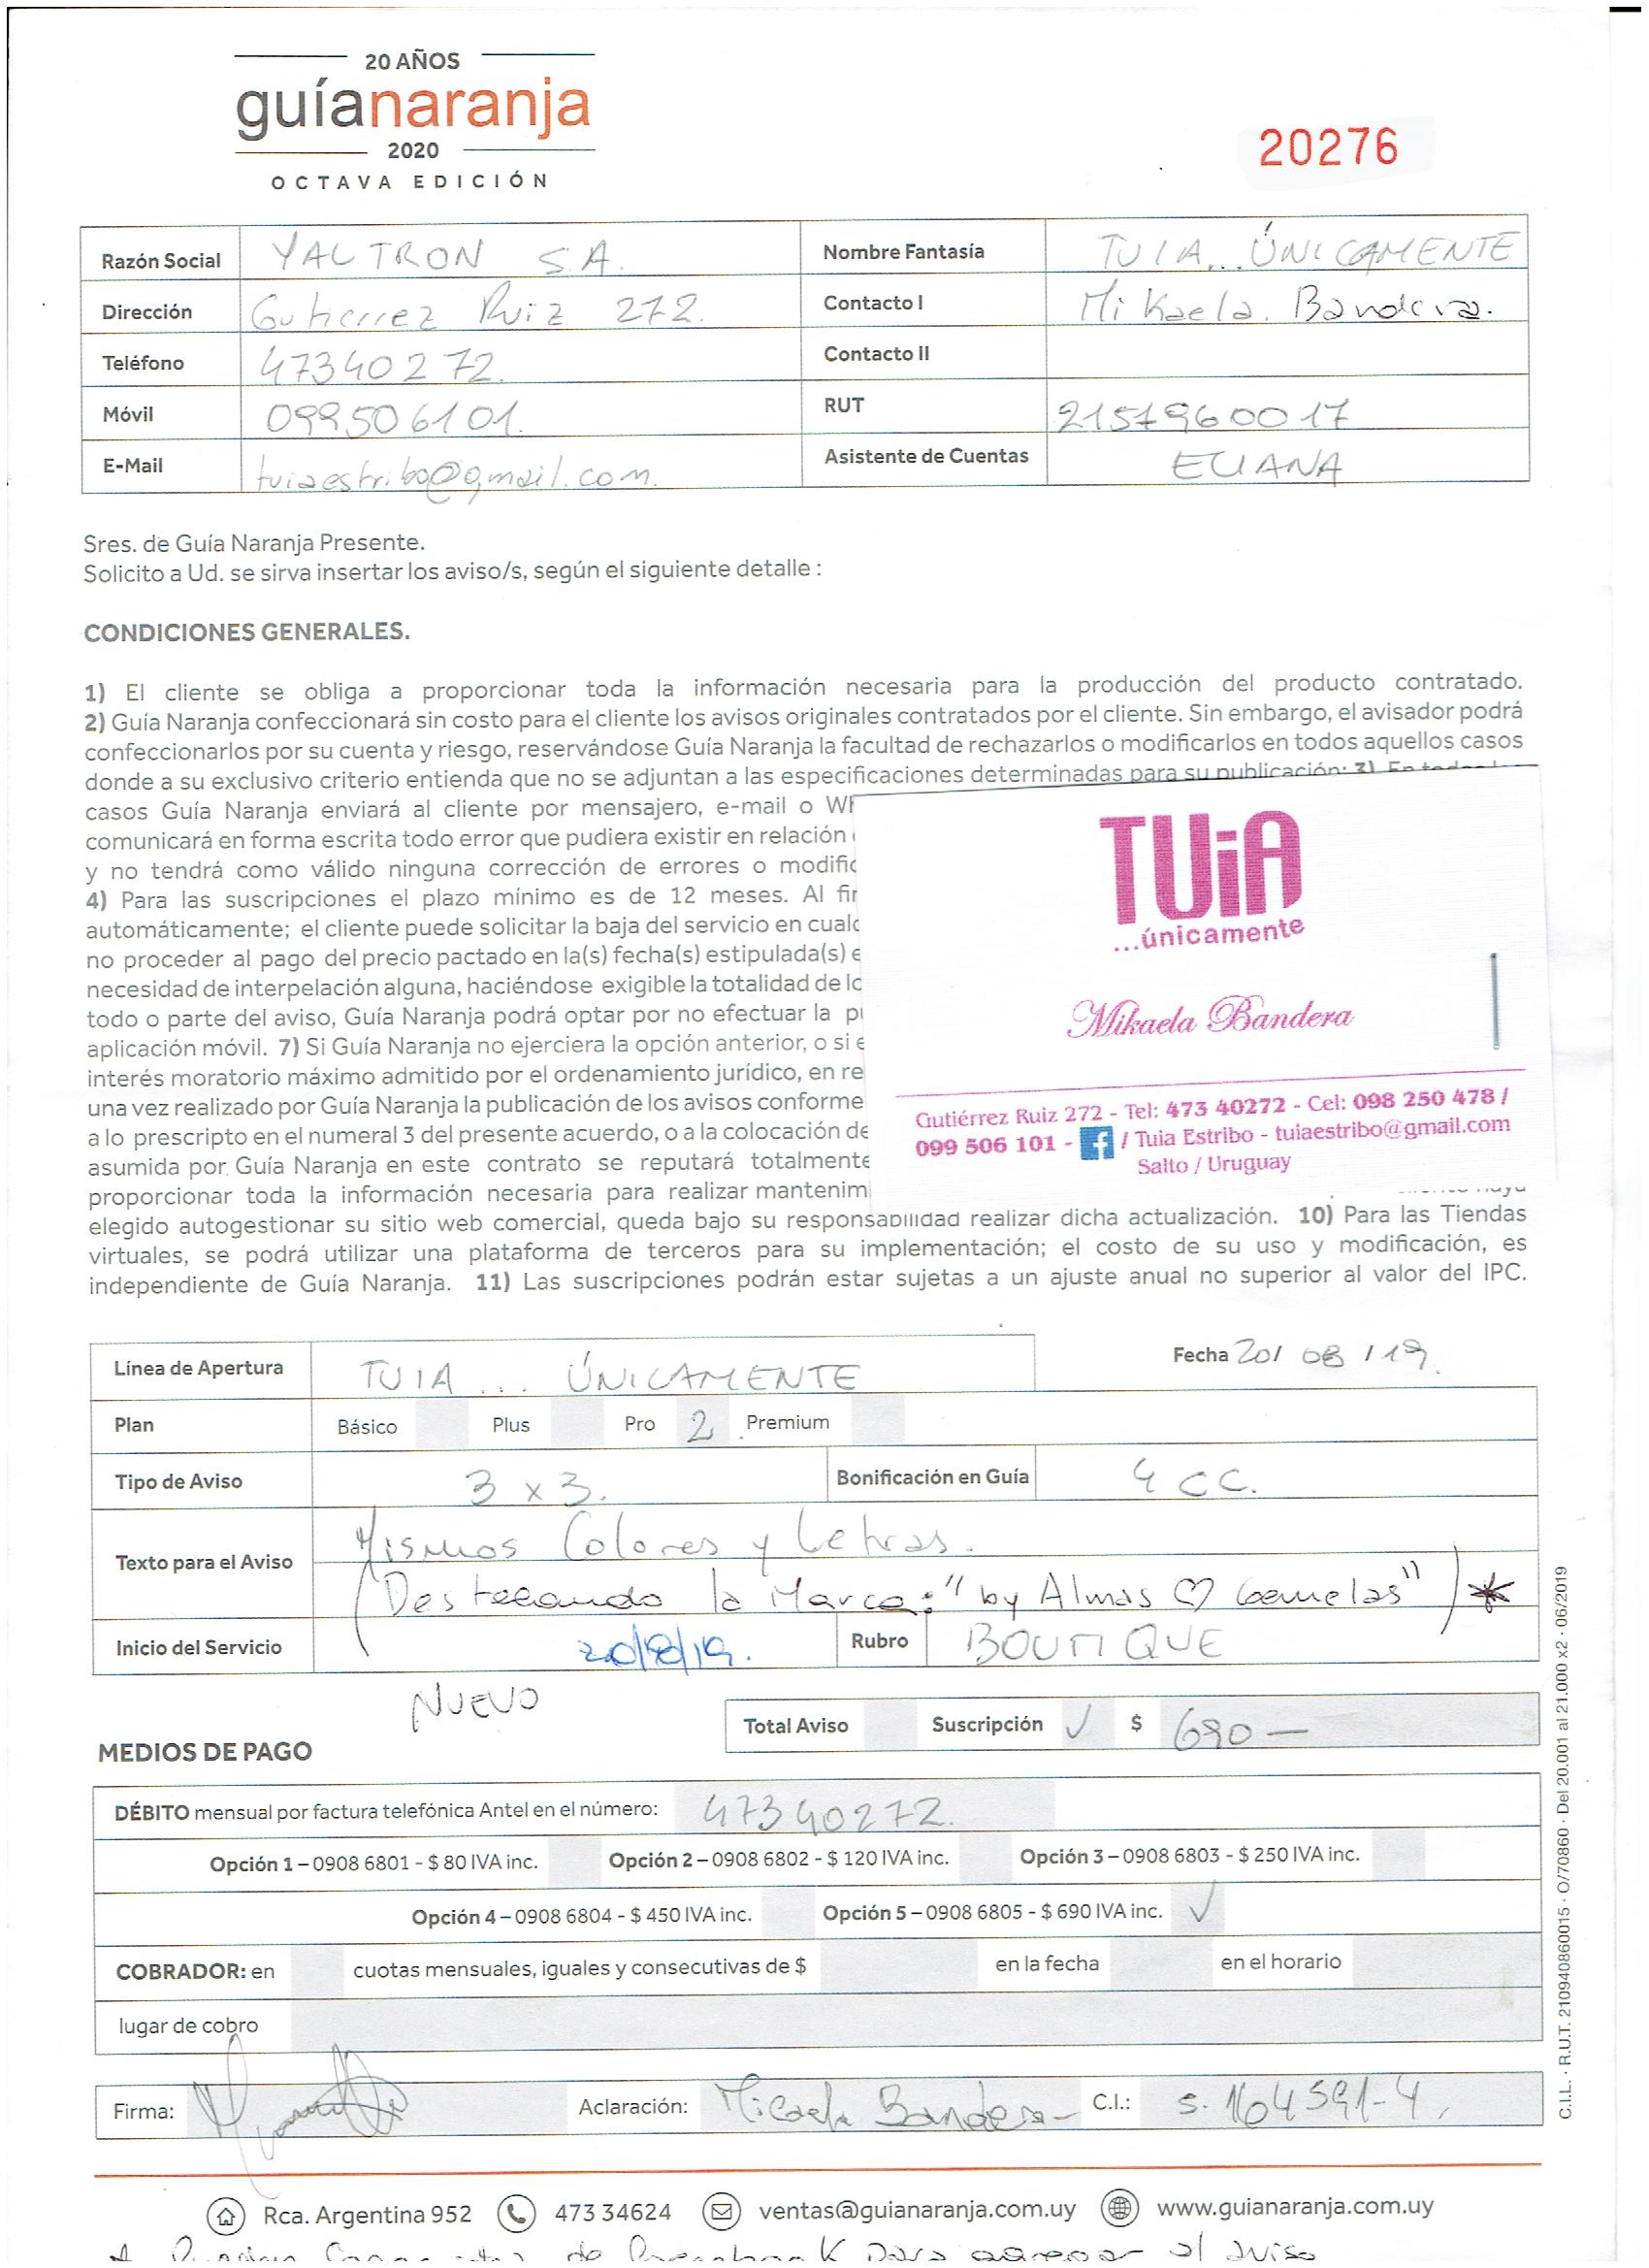 20 AÑOS
guíanaranja
2020
OCTAVA EDICIÓN
20276
Razón Social YALTRON S.A. Nombre Fantasía TUIA... ÚNICAMENTE
Dirección Gutierrez Ruiz 272. Contacto I Mikaela. Bandera.
Teléfono 47340272. Contacto II
Móvil 099506101. RUT
E-Mail tuiaestribo@gmail.com. Asistente de Cuentas ELIANA
Sres. de Guía Naranja Presente.
Solicito a Ud. se sirva insertar los aviso/s, según el siguiente detalle :
CONDICIONES GENERALES.
1) El cliente se obliga a proporcionar toda la información necesaria para la producción del producto contratado.
2) Guía Naranja confeccionará sin costo para el cliente los avisos originales contratados por el cliente. Sin embargo, el avisador podrá
confeccionarlos por su cuenta y riesgo, reservándose Guía Naranja la facultad de rechazarlos o modificarlos en todos aquellos casos
donde a su exclusivo criterio entienda que no se adjuntan a las especificaciones determinadas para su publicación; 3) En
casos Guía Naranja enviará al cliente por mensajero, e-mail o
comunicará en forma escrita todo error que pudiera existir en relación
y no tendrá como válido ninguna corrección de errores o
4) Para las suscripciones el plazo mínimo es de 12 meses. Al
automáticamente; el cliente puede solicitar la baja del servicio en
no proceder al pago del precio pactado en la(s) fecha(s) estipulada(s)
necesidad de interpelación alguna, haciéndose exigible la totalidad de
todo o parte del aviso, Guía Naranja podrá optar por no efectuar la
aplicación móvil. 7) Si Guía Naranja no ejerciera la opción anterior, o si
interés moratorio máximo admitido por el ordenamiento jurídico, en
una vez realizado por Guía Naranja la publicación de los avisos conforme
a lo prescripto en el numeral 3 del presente acuerdo, o a la colocación
asumida por Guía Naranja en este contrato se reputará totalmente
proporcionar toda la información necesaria para realizar
elegido autogestionar su sitio web comercial, queda bajo su responsabilidad realizar dicha actualización. 10) Para las Tiendas
virtuales, se podrá utilizar una plataforma de terceros para su implementación; el costo de su uso y modificación, es
independiente de Guía Naranja. 11) Las suscripciones podrán estar sujetas a un ajuste anual no superior al valor del IPC.
TUiA
...únicamente
Mikaela Bandera
Gutiérrez Ruiz 272 - Tel: 473 40272 - Cel: 098 250 478 /
099 506 101 - f / Tuia Estribo - tuiaestribo@gmail.com
Salto / Uruguay
Línea de Apertura TUIA ... ÚNICAMENTE Fecha 20/ 08 / 19.
Plan Básico Plus Pro 2 Premium
Tipo de Aviso 3 x 3. Bonificación en Guía 4 CC.
Texto para el Aviso Mismos Colores y Letras.
(Destacando la Marca: "by Almas ♡ Gemelas") *
Inicio del Servicio 20/8/19. Rubro BOUTIQUE
NUEVO
Total Aviso Suscripción ✓ $ 690 —
MEDIOS DE PAGO
DÉBITO mensual por factura telefónica Antel en el número: 47340272.
Opción 1 – 0908 6801 - $ 80 IVA inc. Opción 2 – 0908 6802 - $ 120 IVA inc. Opción 3 – 0908 6803 - $ 250 IVA inc.
Opción 4 – 0908 6804 - $ 450 IVA inc. Opción 5 – 0908 6805 - $ 690 IVA inc. ✓
COBRADOR: en cuotas mensuales, iguales y consecutivas de $ en la fecha en el horario
lugar de cobro
Firma: Aclaración: Micaela Bandera C.I.: 5.164591-4
Rca. Argentina 952 473 34624 ventas@guianaranja.com.uy www.guianaranja.com.uy
de para agregar al aviso
C.I.L. · R.U.T. 210940860015 · O/70860 · Del 20.001 al 21.000 x2 · 06/2019